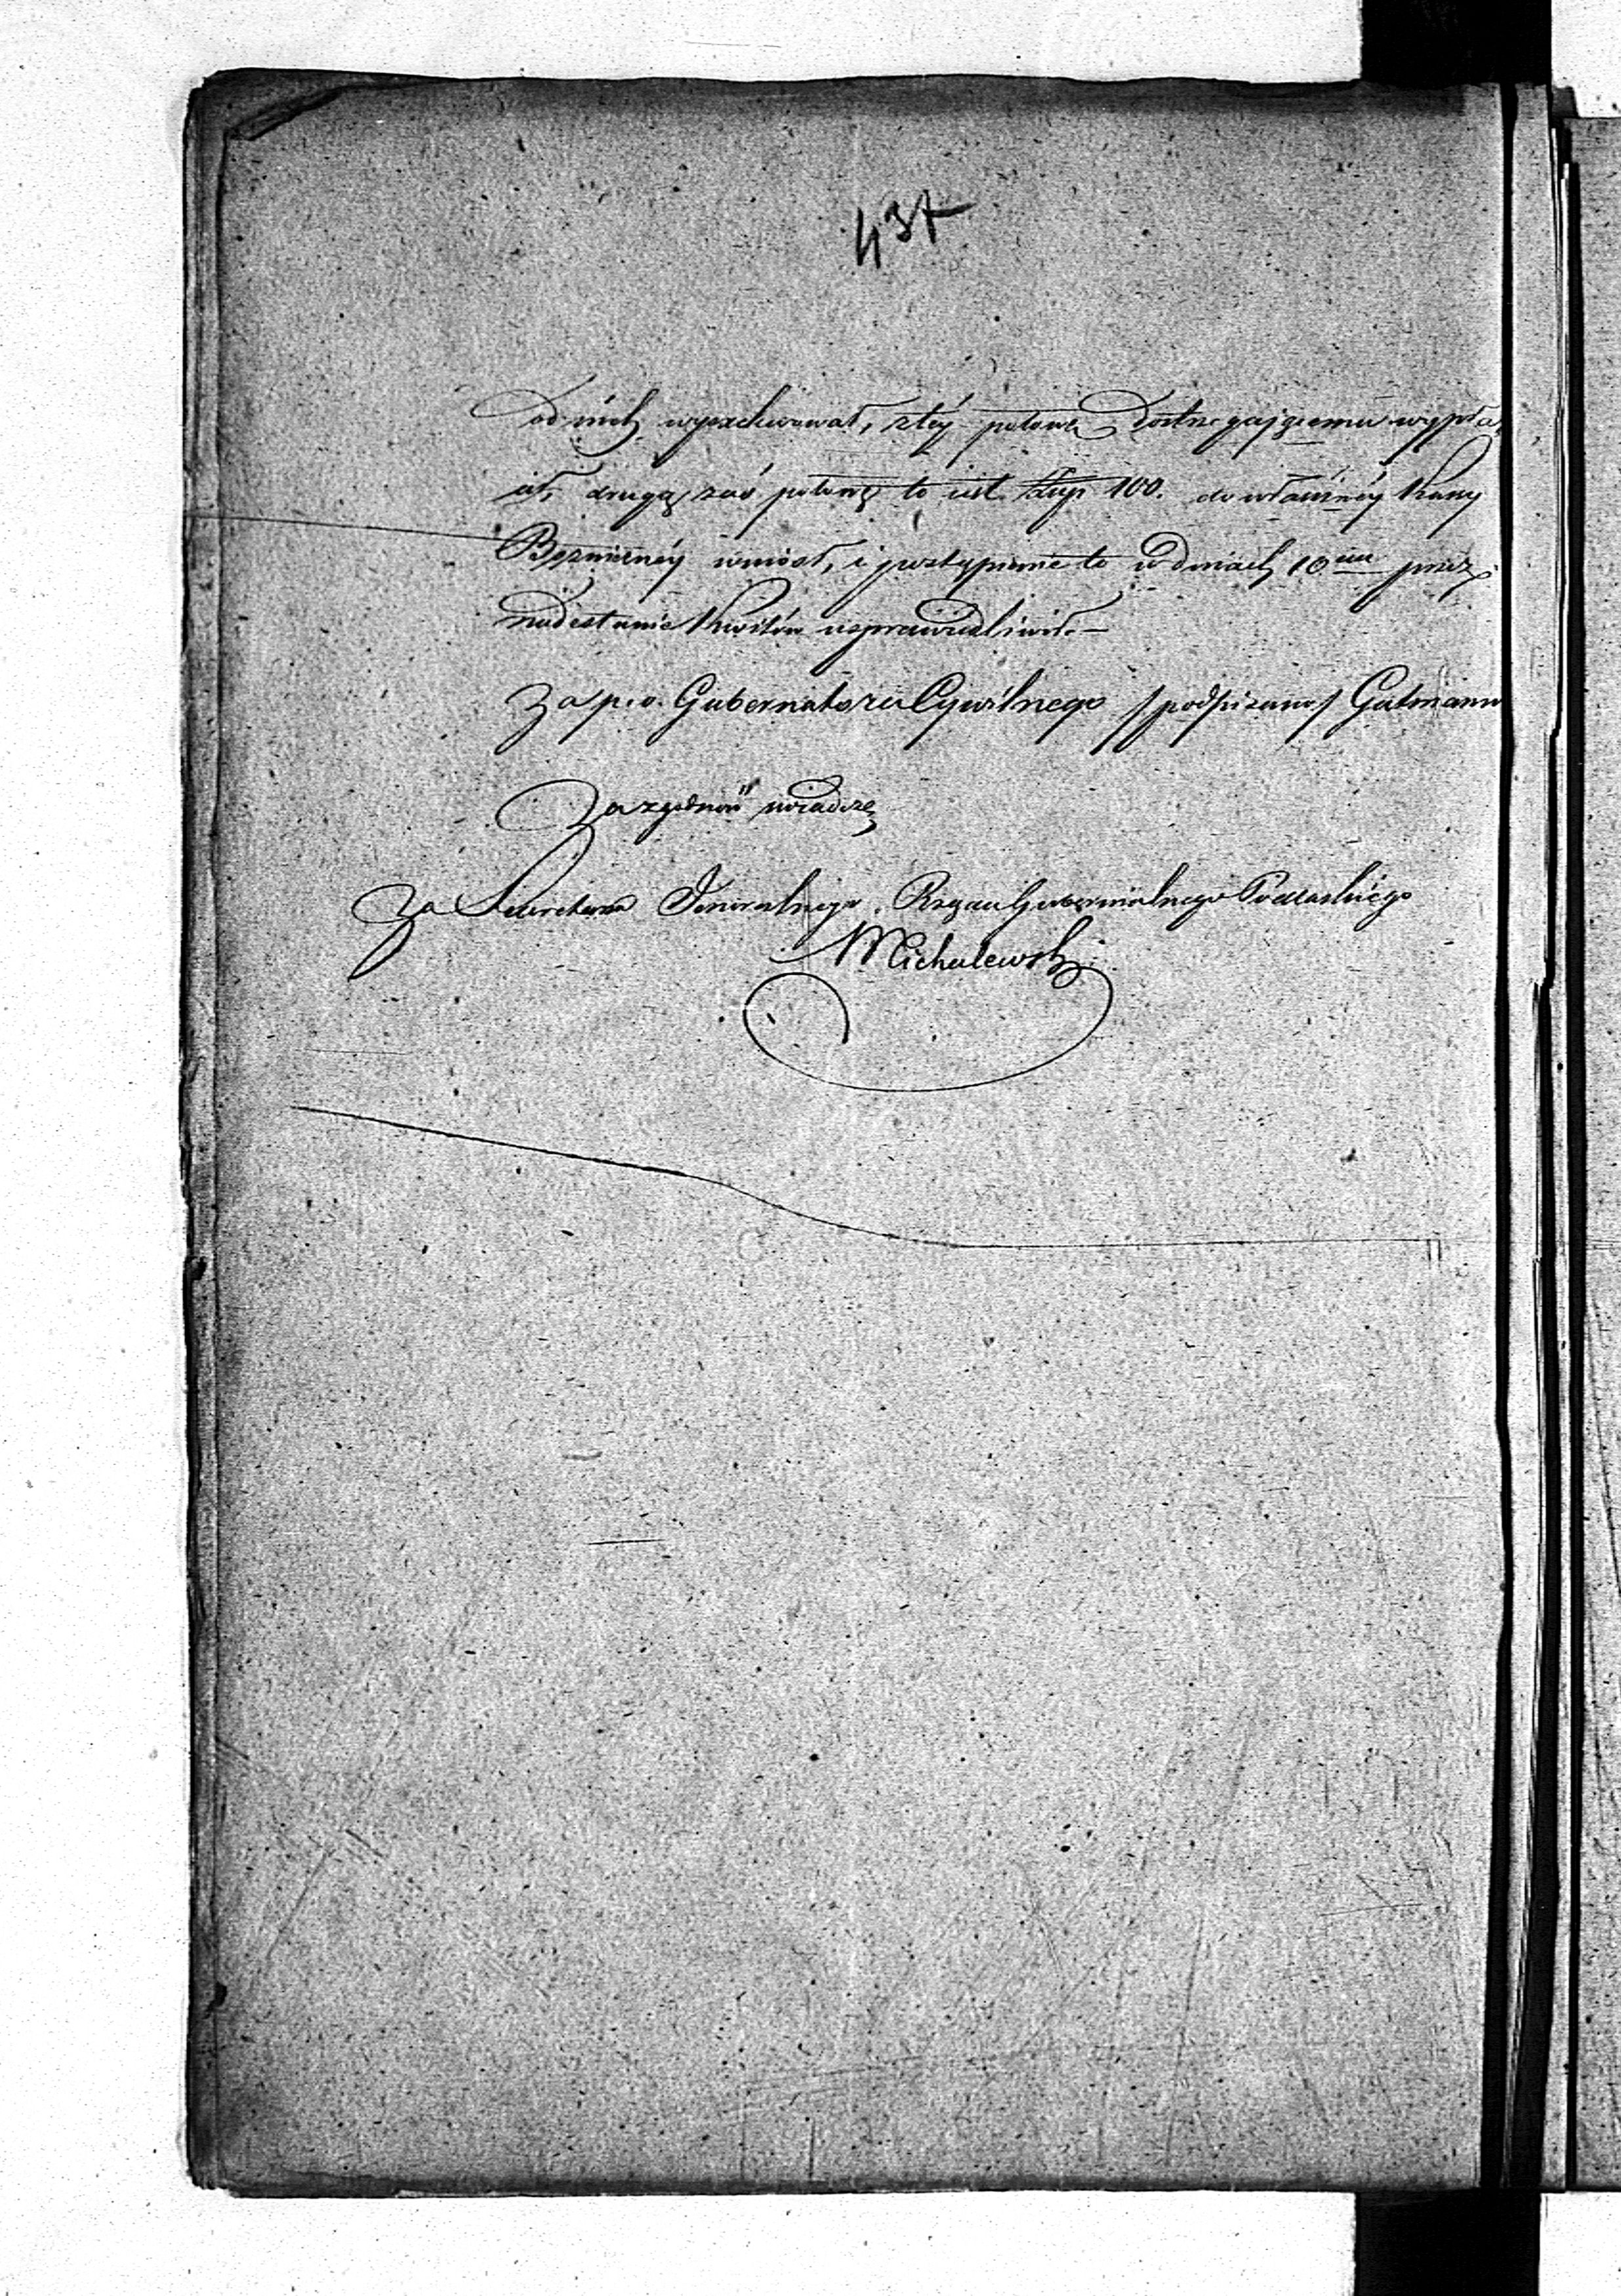 437
od nich wyexekwował, z téj połowę Dostrzegającemu wypła
cił, drugą zaś połowę to iest Złp. 100. do właściwéj Kassy
wniosł, i postąpienie to w dniach 10ciu przez
nadesłanie Kwitów usprawiedliwił.—
Za p. o. Gubernatora Cywilnego /podpisano/ Gutmann
Za zgodność świadczę
Za Sekretarza Jeneralnego Rządu Gubernialnego Podlaskiégo
Michalewski